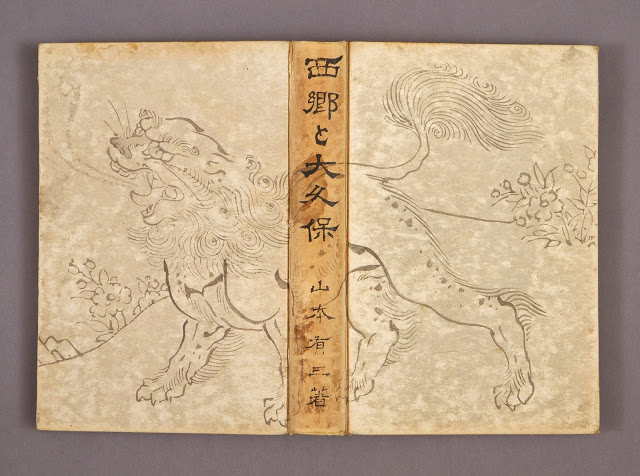 西郷と大久保
山本有三著